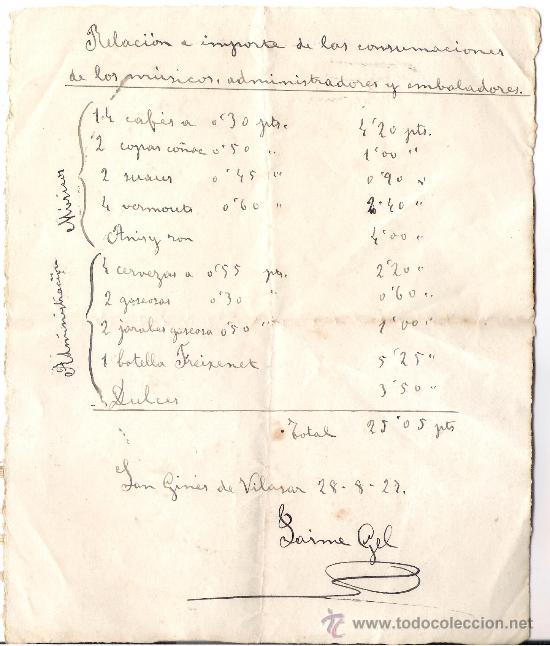 Relación e importe de las consumaciones
de los músicos, administradores y embaladores.
Músicos
14 cafés a 0'30 pts. 4'20 pts.
2 copas coñac 0'50 " 1'00 "
2 suaus 0'45 " 0'90 "
4 vermouts 0'60 " 2'40 "
Anis y ron 4'00 "
Administración
4 cervezas a 0'55 pts. 2'20 "
2 gaseosas 0'30 " 0'60 "
2 jarabes gaseosa 0'50 " 1'00 "
1 botella Freixenet 5'25 "
Dulces 3'50 "
Total 25'05 pts
San Ginés de Vilasar 28-8-27.
Jaime Gel
todocoleccion
WWW.TODOCOLECCION.NET